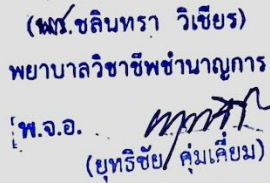 (พร.ชลินทรา วิเชียร)
พยาบาลวิชาชีพชำนาญการ
พ.จ.อ.
(ยุทธิชัย คุ่มเคี่ยม)